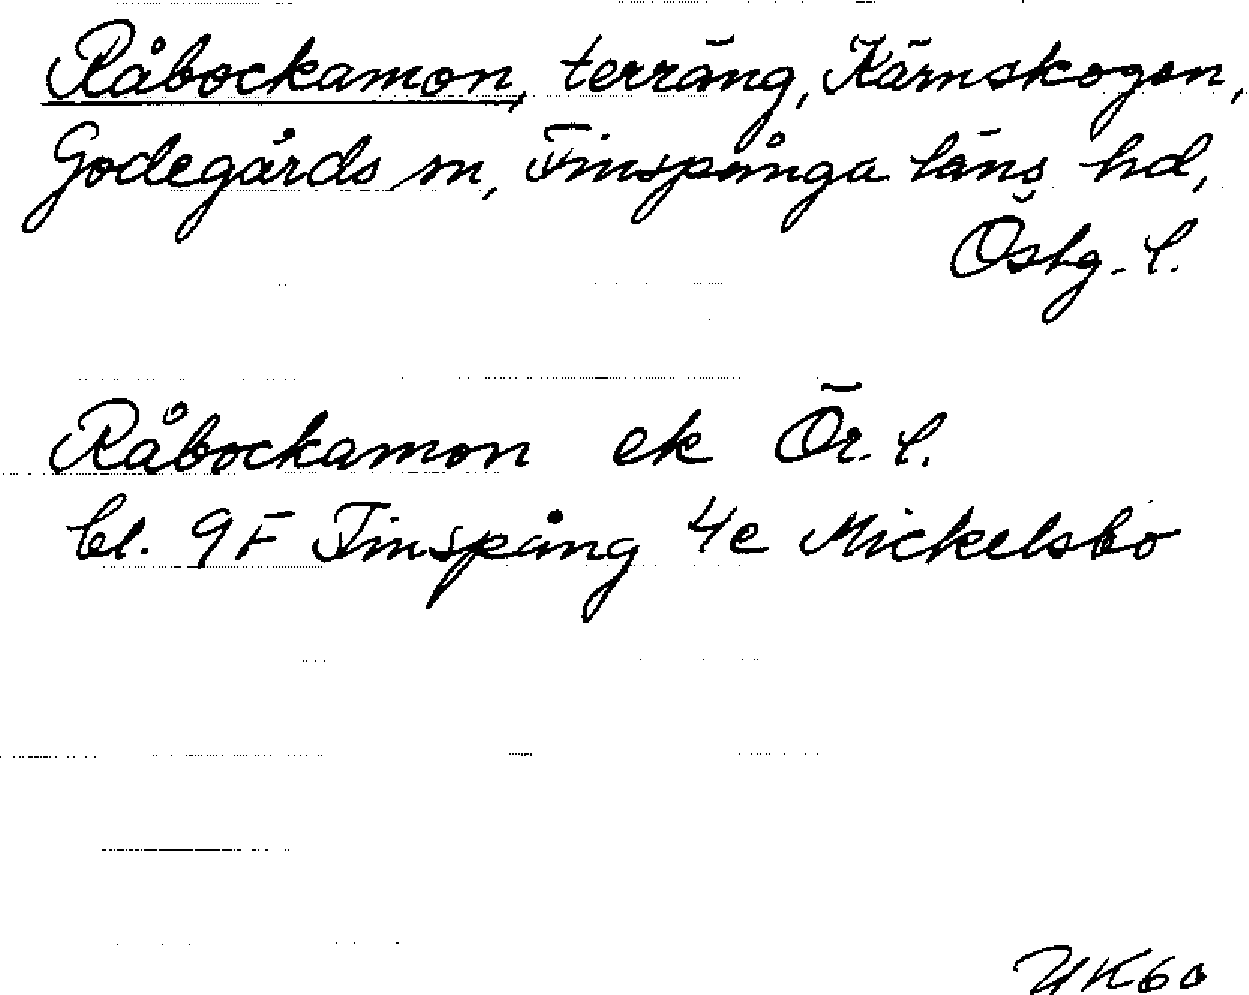 Råbockamon, terräng, Kärnskogen,
Godegårds sn, Finspånga läns hd,
Östg. l.
Råbockamon ek Ör. l.
bl. 9F Finspång 4e Mickelsbo